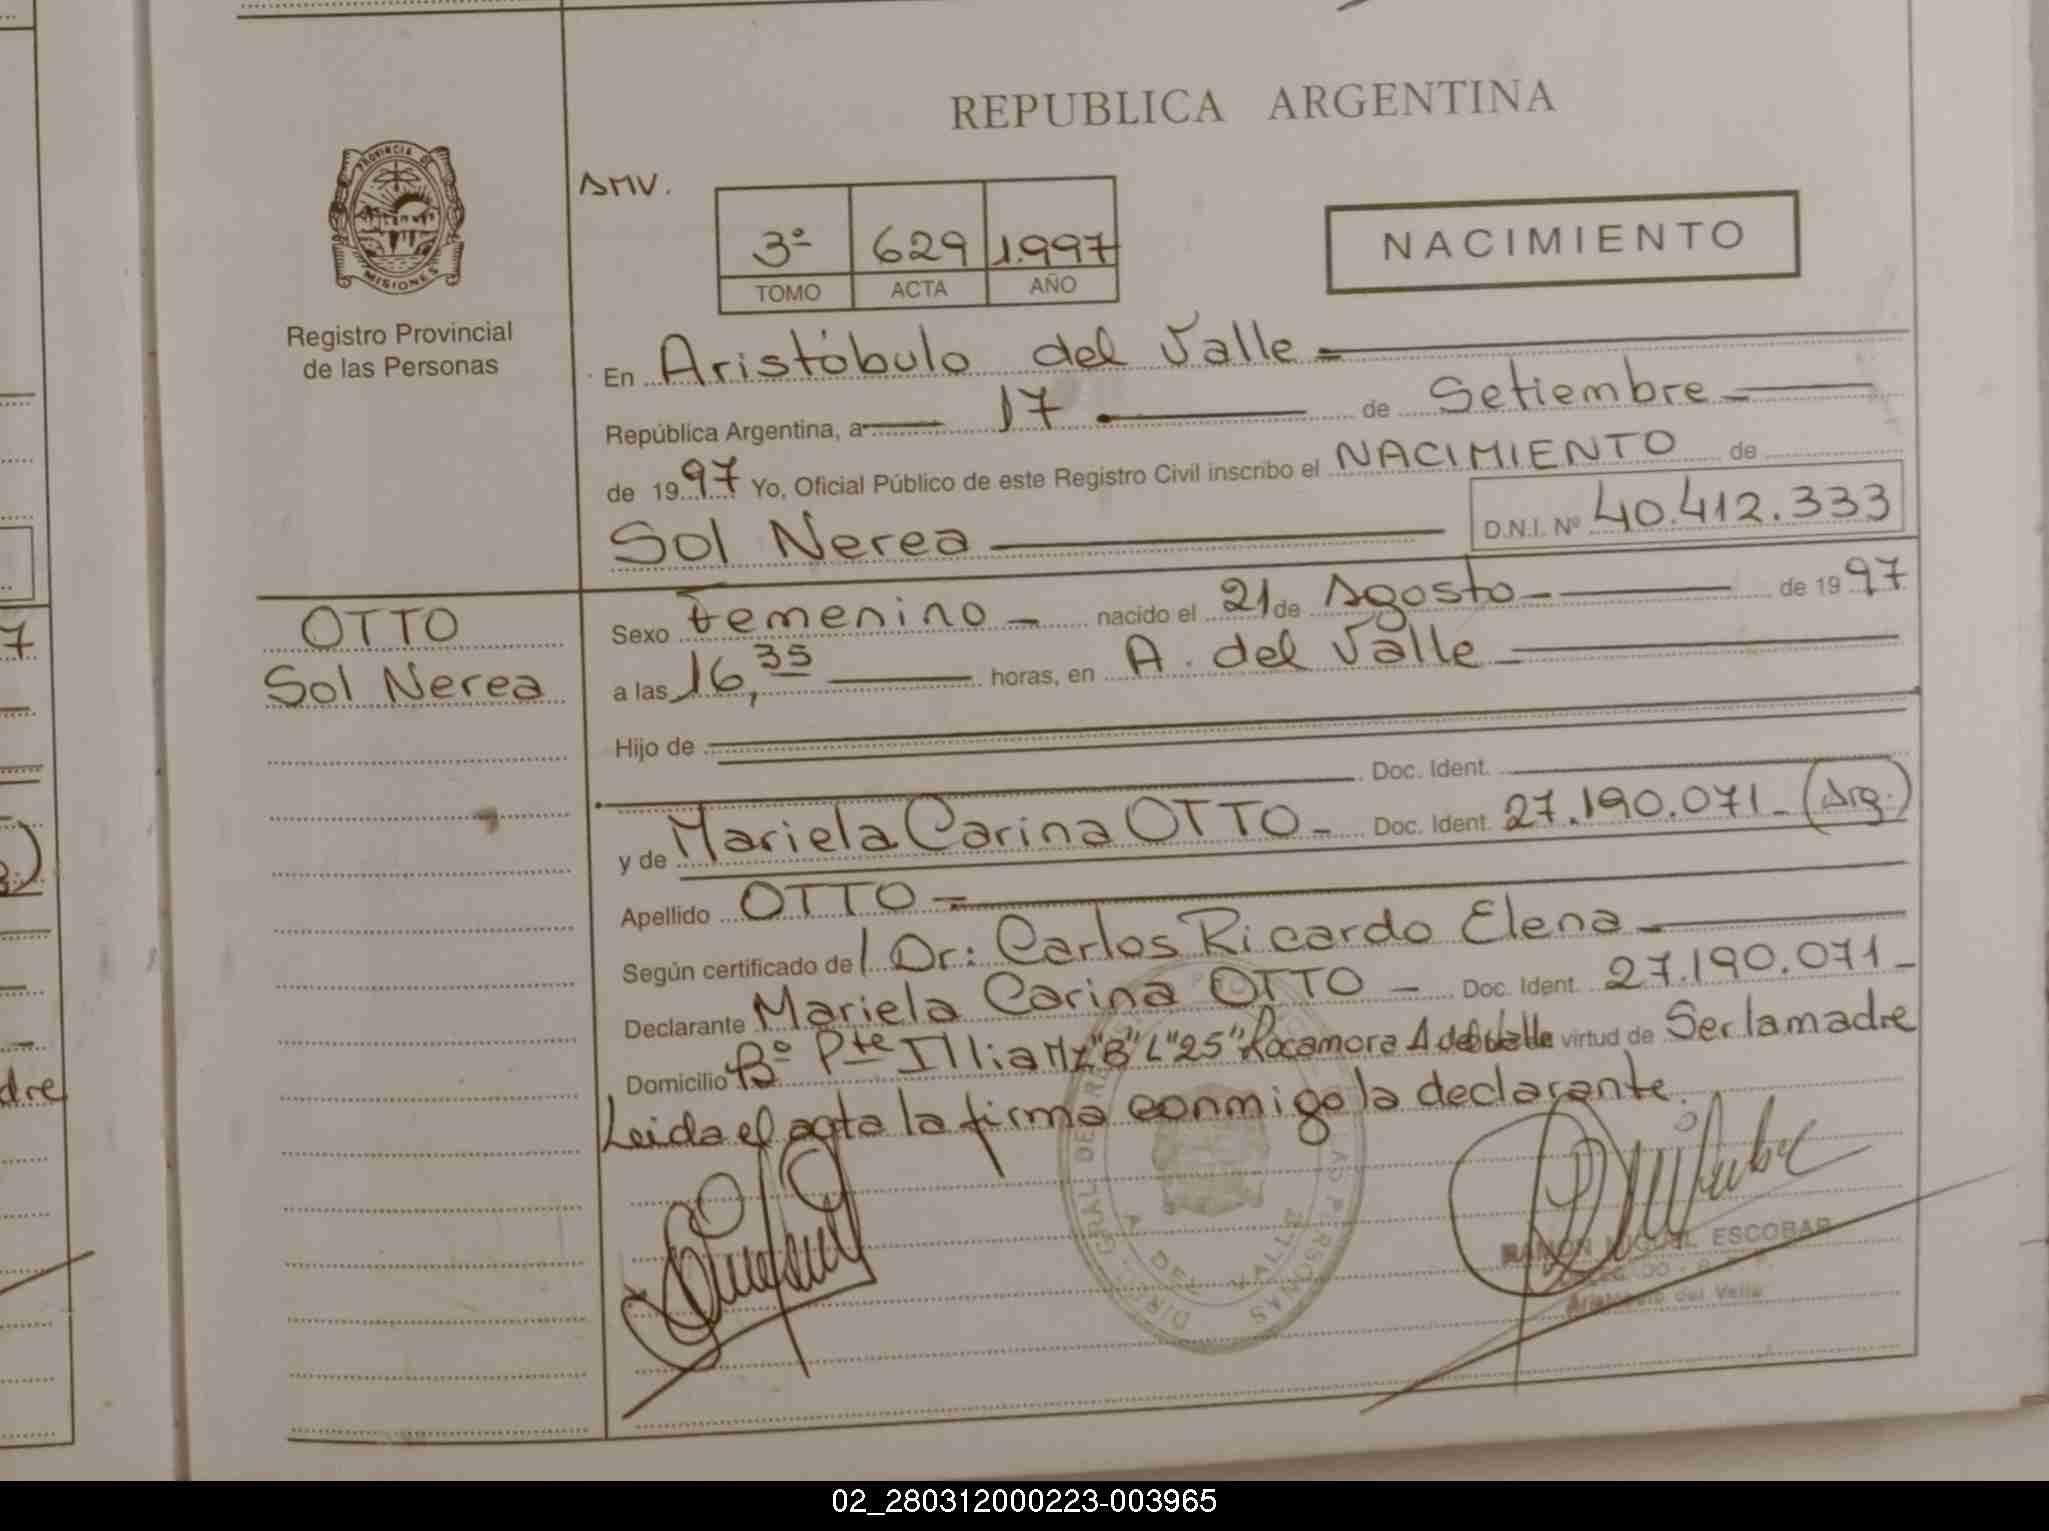 REPUBLICA ARGENTINA
PROVINCIA DE
MISIONES
Registro Provincial
de las Personas
AMV.
3º 629 1.997
TOMO ACTA AÑO
NACIMIENTO
En Aristóbulo del Valle
República Argentina, a 17 de Setiembre
de 1997 Yo, Oficial Público de este Registro Civil inscribo el NACIMIENTO de
Sol Nerea D.N.I. Nº 40.412.333
OTTO
Sol Nerea
Sexo Femenino nacido el 21 de Agosto de 1997
a las 16,35 horas, en A. del Valle
Hijo de
Doc. Ident.
y de Mariela Carina OTTO Doc. Ident. 27.190.071 (Arg.)
Apellido OTTO
Según certificado del Dr: Carlos Ricardo Elena
Declarante Mariela Carina OTTO Doc. Ident. 27.190.071
Domicilio Bº Pte Illia Mz "B" L "25" Rocamora A del Valle virtud de Ser la madre
Leida el acta la firma conmigo la declarante.
A DEL VALLE
ESCOBAR
del Valle
7
dre
02_280312000223-003965